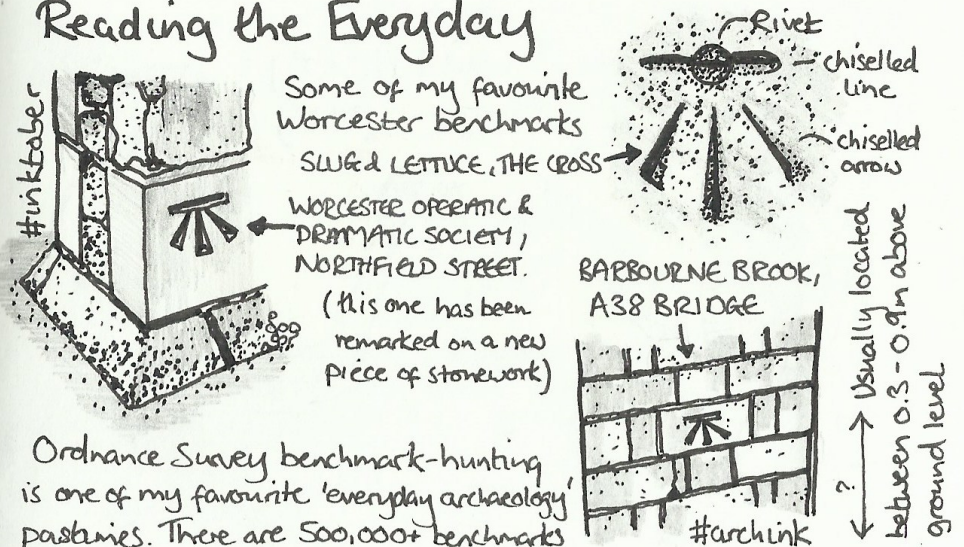 Reading the Everyday
#inktober
Some of my favourite
Worcester benchmarks
SLUG & LETTUCE, THE CROSS
WORCESTER OPERATIC &
DRAMATIC SOCIETY,
NORTHFIELD STREET.
(this one has been
remarked on a new
piece of stonework)
Rivet
chiselled
line
chiselled
arrow
BARBOURNE BROOK,
A38 BRIDGE
?
Usually located
between 0.3 - 0.9m above
ground level
#archink
Ordnance Survey benchmark-hunting
is one of my favourite 'everyday archaeology'
pastimes. There are 500,000+ benchmarks